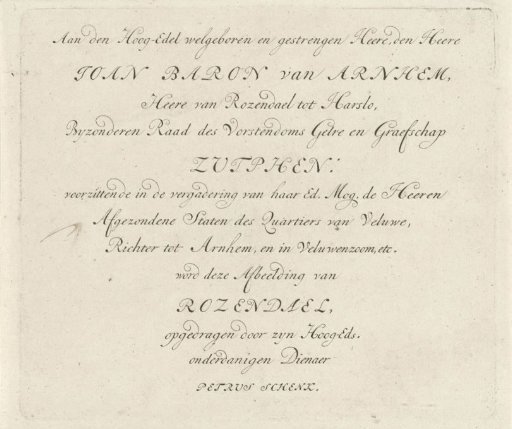 Aan den Hoog-Edel welgeboren en gestrengen Heere, den Heere
JOAN BARON van ARNHEM,
Heere van Rozendael tot Harslo,
Byzonderen Raad des Vorstendoms Gelre en Graefschap
ZUTPHEN:
voorzittende in de vergadering van haar Ed. Mog. de Heeren
Afgezondene Staten des Quartiers van Veluwe,
Richter tot Arnhem, en in Veluwenzoom, etc.
word deze Afbeelding van
ROZENDAEL,
opgedragen door zyn Hoog-Eds.
onderdanigen Dienaer
PETRUS SCHENK.